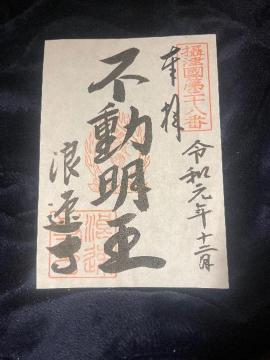 攝津國第二十八番
奉拝
令和元年十二月
不動明王
浪速寺